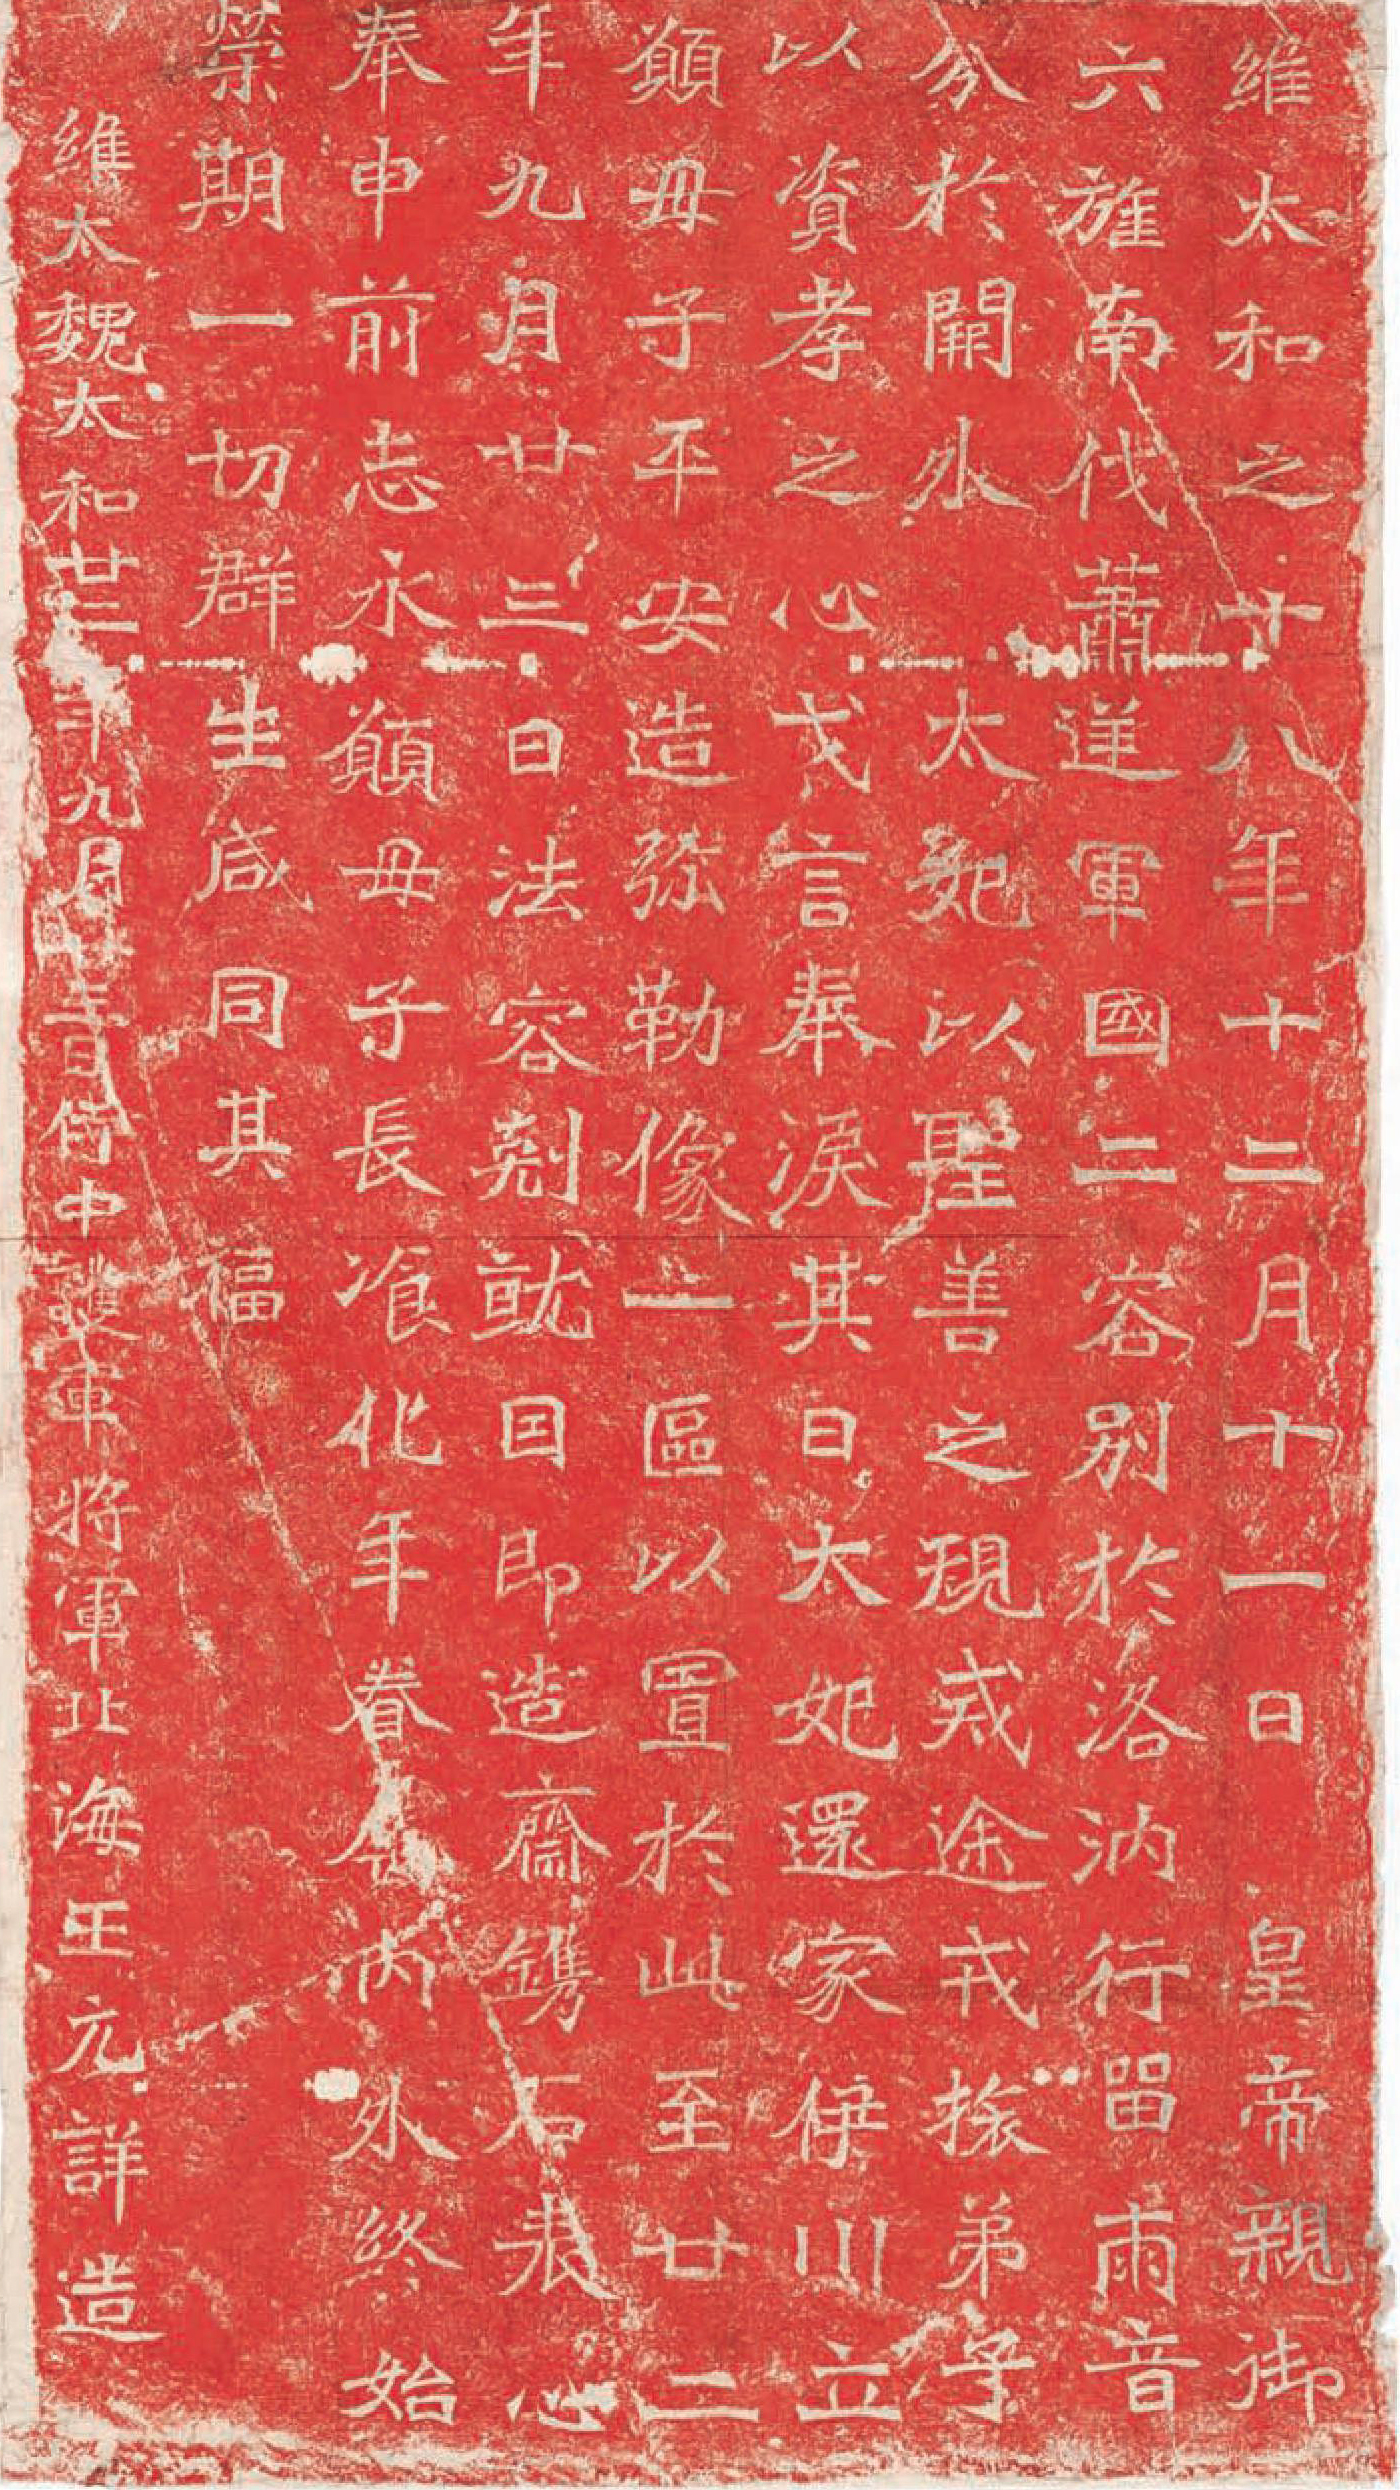 維太和之十八年十二月十一日皇帝親御
六旌南伐蕭逆軍國二容別於洛汭行留兩音
分於闕外太妃以聖善之規戒途戎旅弟子
以資孝之心戈言奉淚其日太妃還家伊川立
願母子平安造弥勒像一區以置於此至廿二
年九月廿三日法容剋就因即造齋鐫石表心
奉申前志永願母子長飡化年眷屬内外終始
榮期一切群生咸同其福
維太魏太和廿二年九月廿三日侍中護軍將軍北海王元詳造